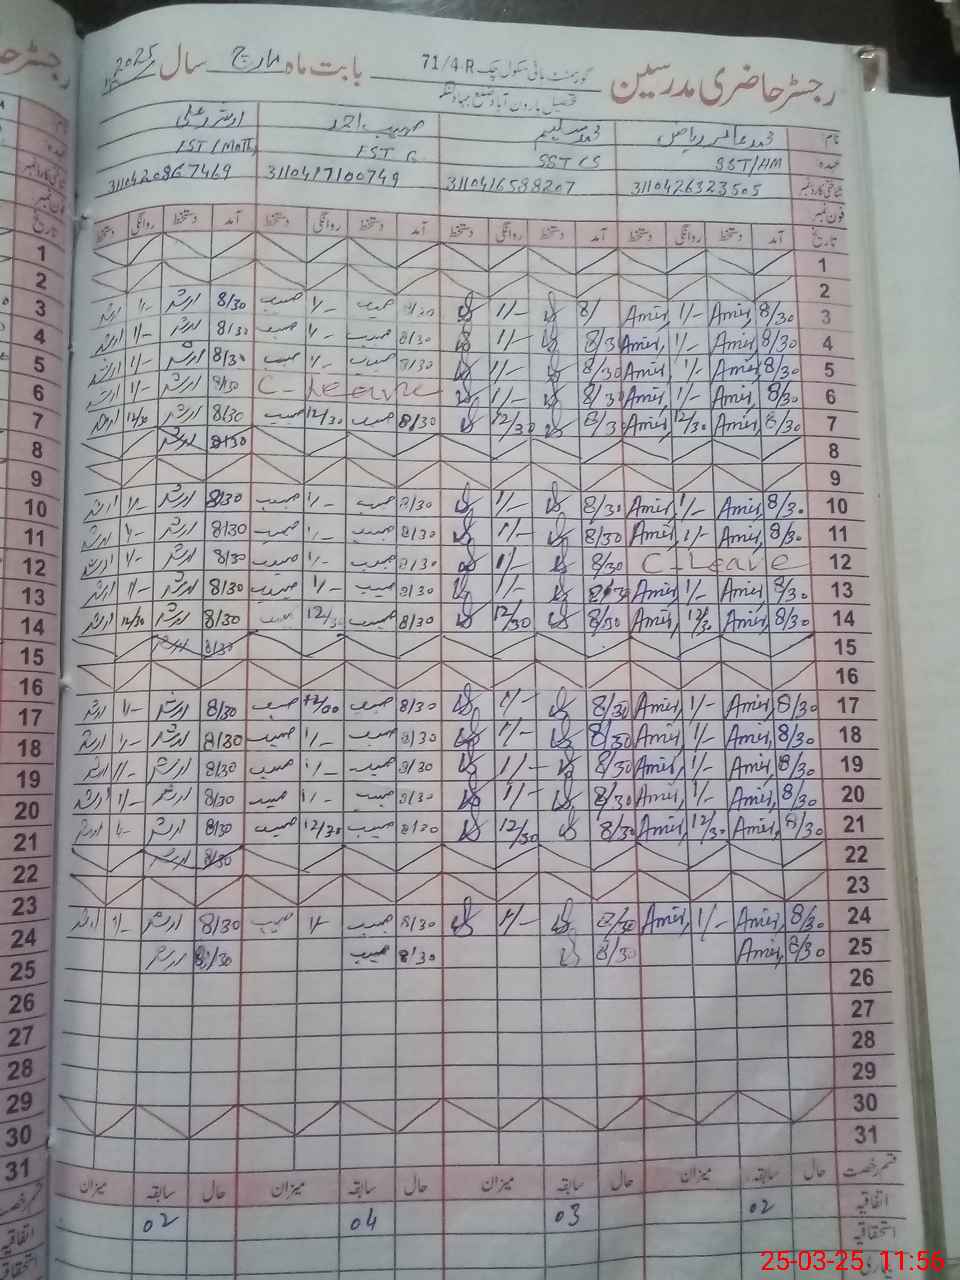 رجسٹر حاضری مدرسین گورنمنٹ ہائی سکول چک 71/4-R بابت ماہ مارچ سال 2025
تحصیل ہارون آباد ضلع بہاولنگر
نام محمد عامر ریاض محمد سلیم حبیب احمد ارشد علی
عہدہ SST/HM SST CS EST G EST/Math
شناختی کارڈ نمبر 3110426323505 3110416598207 3110417100749 3110420967469
فون نمبر
تاریخ آمد دستخط روانگی دستخط آمد دستخط روانگی دستخط آمد دستخط روانگی دستخط آمد دستخط روانگی دستخط
1
2
3 8/30 Amir, 1/- Amir 8/ 1/- 8/30 حبیب 1/- حبیب 8/30 ارشد 1/- ارشد
4 8/30 Amir, 1/- Amir, 8/30 1/- 8/30 حبیب 1/- حبیب 8/30 ارشد 1/- ارشد
5 8/30 Amir, 1/- Amir, 8/30 1/- 8/30 حبیب 1/- حبیب 8/30 ارشد 1/- ارشد
6 8/30 Amir, 1/- Amir, 8/30 1/- C-Leave 8/30 ارشد 1/- ارشد
7 8/30 Amir, 12/30 Amir, 8/30 12/30 8/30 حبیب 12/30 حبیب 8/30 ارشد 12/30 ارشد
8 8/30 ارشد
9
10 8/30 Amir, 1/- Amir, 8/30 1/- 8/30 حبیب 1/- حبیب 8/30 ارشد 1/- ارشد
11 8/30 Amir, 1/- Amir, 8/30 1/- 8/30 حبیب 1/- حبیب 8/30 ارشد 1/- ارشد
12 C-Leave 8/30 1/- 8/30 حبیب 1/- حبیب 8/30 ارشد 1/- ارشد
13 8/30 Amir, 1/- Amir, 8/30 1/- 8/30 حبیب 1/- حبیب 8/30 ارشد 1/- ارشد
14 8/30 Amir, 12/30 Amir, 8/30 12/30 8/30 حبیب 12/30 حبیب 8/30 ارشد 12/30 ارشد
15 8/30 ارشد
16
17 8/30 Amir, 1/- Amir, 8/30 1/- 8/30 حبیب 12/00 حبیب 8/30 ارشد 1/- ارشد
18 8/30 Amir, 1/- Amir, 8/30 1/- 8/30 حبیب 1/- حبیب 8/30 ارشد 1/- ارشد
19 8/30 Amir, 1/- Amir, 8/30 1/- 8/30 حبیب 1/- حبیب 8/30 ارشد 1/- ارشد
20 8/30 Amir, 1/- Amir, 8/30 1/- 8/30 حبیب 1/- حبیب 8/30 ارشد 1/- ارشد
21 8/30 Amir, 12/30 Amir, 8/30 12/30 8/30 حبیب 12/30 حبیب 8/30 ارشد 1/- ارشد
22 8/30 ارشد
23
24 8/30 Amir, 1/- Amir, 8/30 1/- 8/30 حبیب 1/- حبیب 8/30 ارشد 1/- ارشد
25 8/30 Amir, 8/30 8/30 حبیب 8/30 ارشد
26
27
28
29
30
31
قسم رخصت حال سابقہ میزان حال سابقہ میزان حال سابقہ میزان حال سابقہ میزان
اتفاقیہ 02 03 04 02
استحقاقیہ
25-03-25 11:56